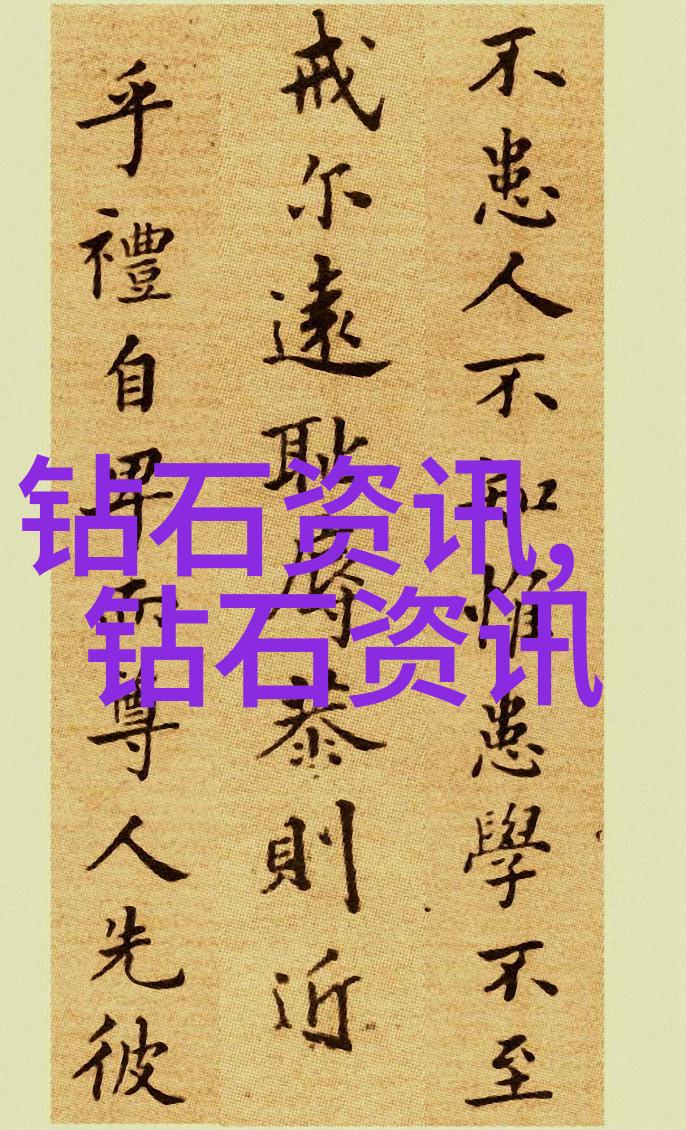 不患人不知惟患學不至
戒尔遠恥辱恭則近
乎禮自卑而尊人先彼
钻石资讯,
钻石资讯